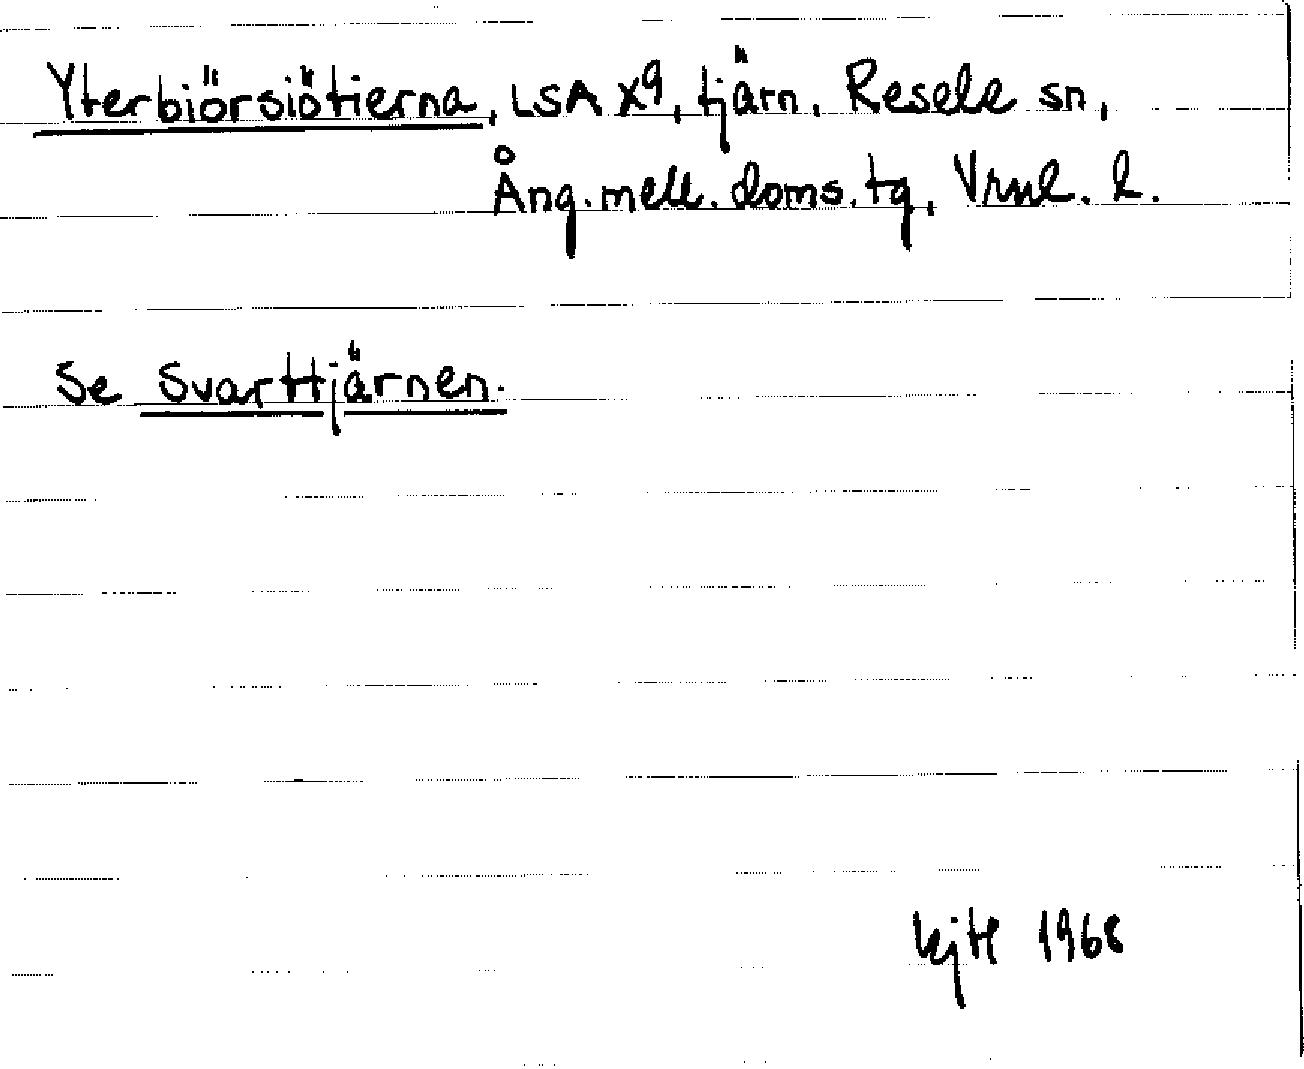 Yterbiörsiötierna, LSA X9, tjärn, Resele sn,
Ång. mell. doms. tg, Vrnl. l.
Se Svarttjärnen.
1968